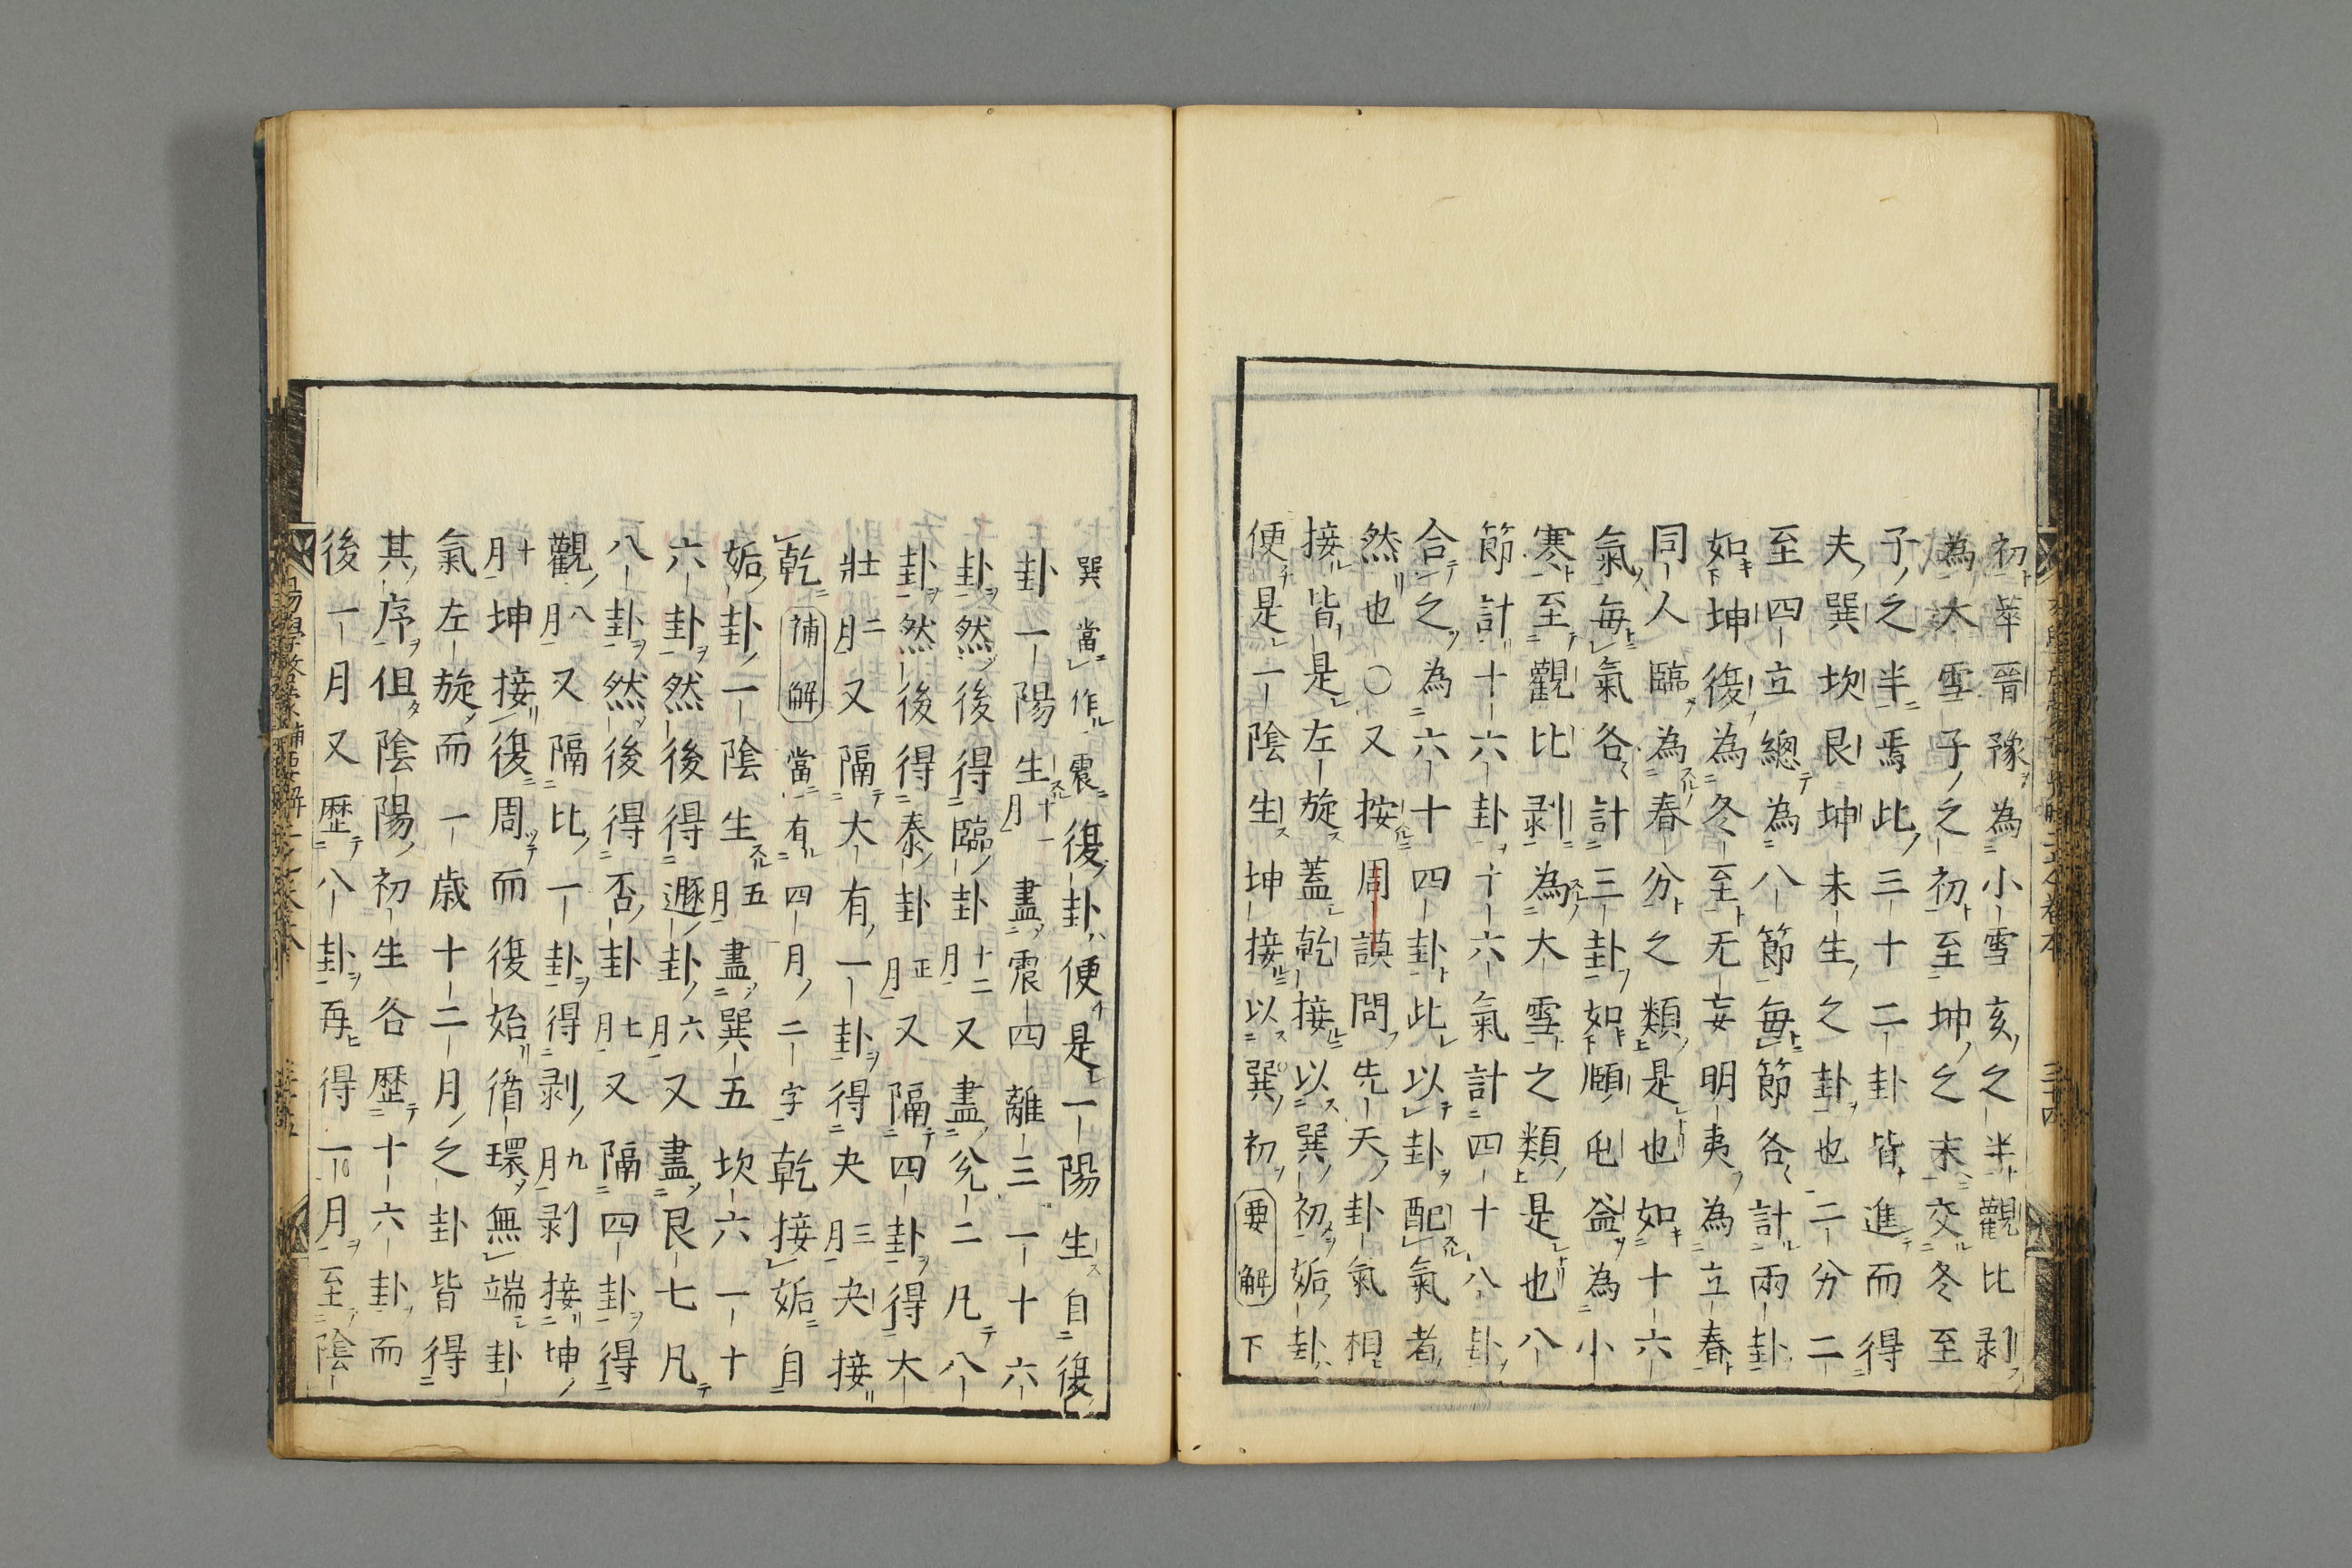 初萃晉豫為小雪亥之半觀比剥
為大雪子之初至坤之末交冬至
子之半焉此三十二卦皆進而得
夫巽坎艮坤未生之卦也二分二
至四立總為八節毎節各計兩卦
如坤復為冬至无妄明夷為立春
同人臨為春分之類是也如十六
氣毎氣各計三卦如頤屯益為小
寒至觀比剥為大雪之類是也八
節計十六卦十六氣計四十八卦
合之為六十四卦此以卦配氣者
然也〇又按周謨問先天卦氣相
接皆是左旋蓋乾接以巽初姤卦
便是一陰生坤接以巽初要解下
巽當作震復卦便是一陽生自復
卦一陽生十一月盡震四離三一十六
卦然後得臨卦十二月又盡兊二凡八
卦然後得泰卦正月又隔四卦得大
壯二月又隔大有一卦得夬三月夬接
乾補解當有四月二字乾接姤自
姤卦一陰生五月盡巽五坎六一十
六卦然後得遯卦六月又盡艮七凡
八卦然後得否卦七月又隔四卦得
觀八月又隔比一卦得剥九月剥接坤
十月坤接復周而復始循環無端卦
氣左旋而一歳十二月之卦皆得
其序伹陰陽初生各歴十六卦而
後一月又歴八卦再得一月至陰
易學啓蒙補要解二之